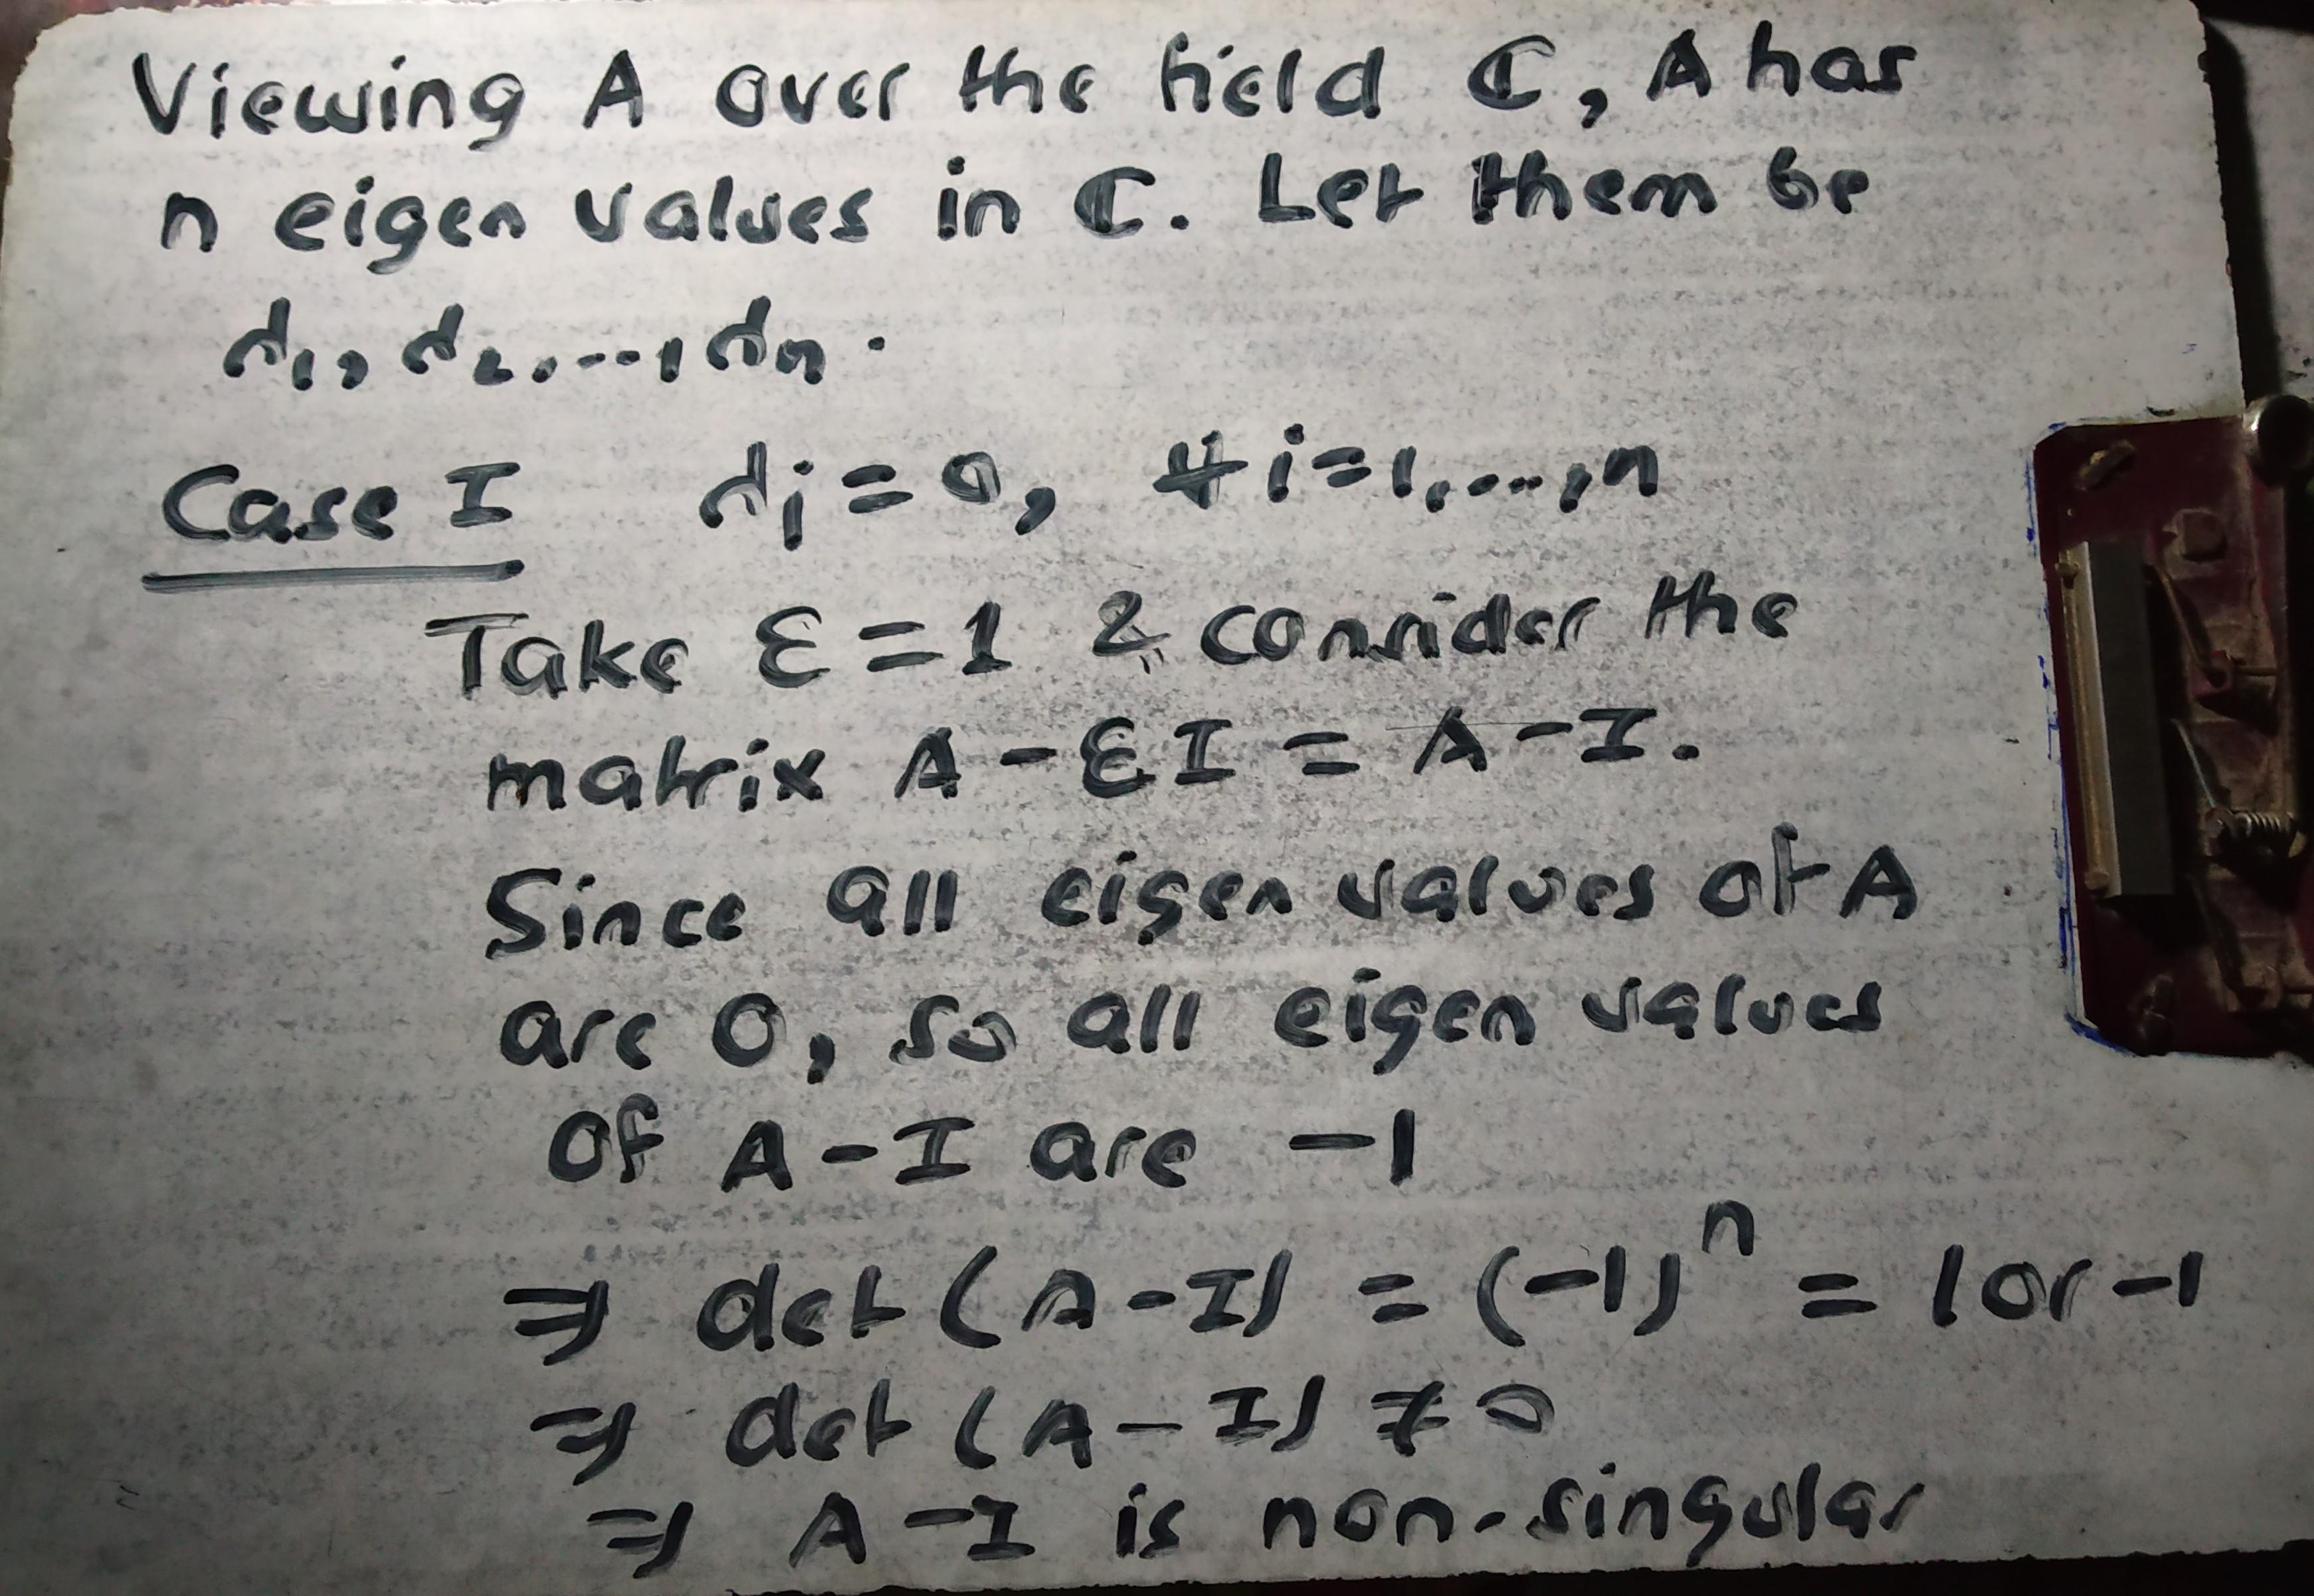 Viewing A over the field ℂ, A has
n eigen values in ℂ. Let them be
λ₁, λ₂, ..., λₙ.
Case I λᵢ = 0, ∀ i = 1, ..., n
Take ε = 1 & consider the
matrix A - εI = A - I.
Since all eigen values of A
are 0, so all eigen values
of A - I are -1
⇒ det (A - I) = (-1)ⁿ = 1 or -1
⇒ det (A - I) ≠ 0
⇒ A - I is non-singular